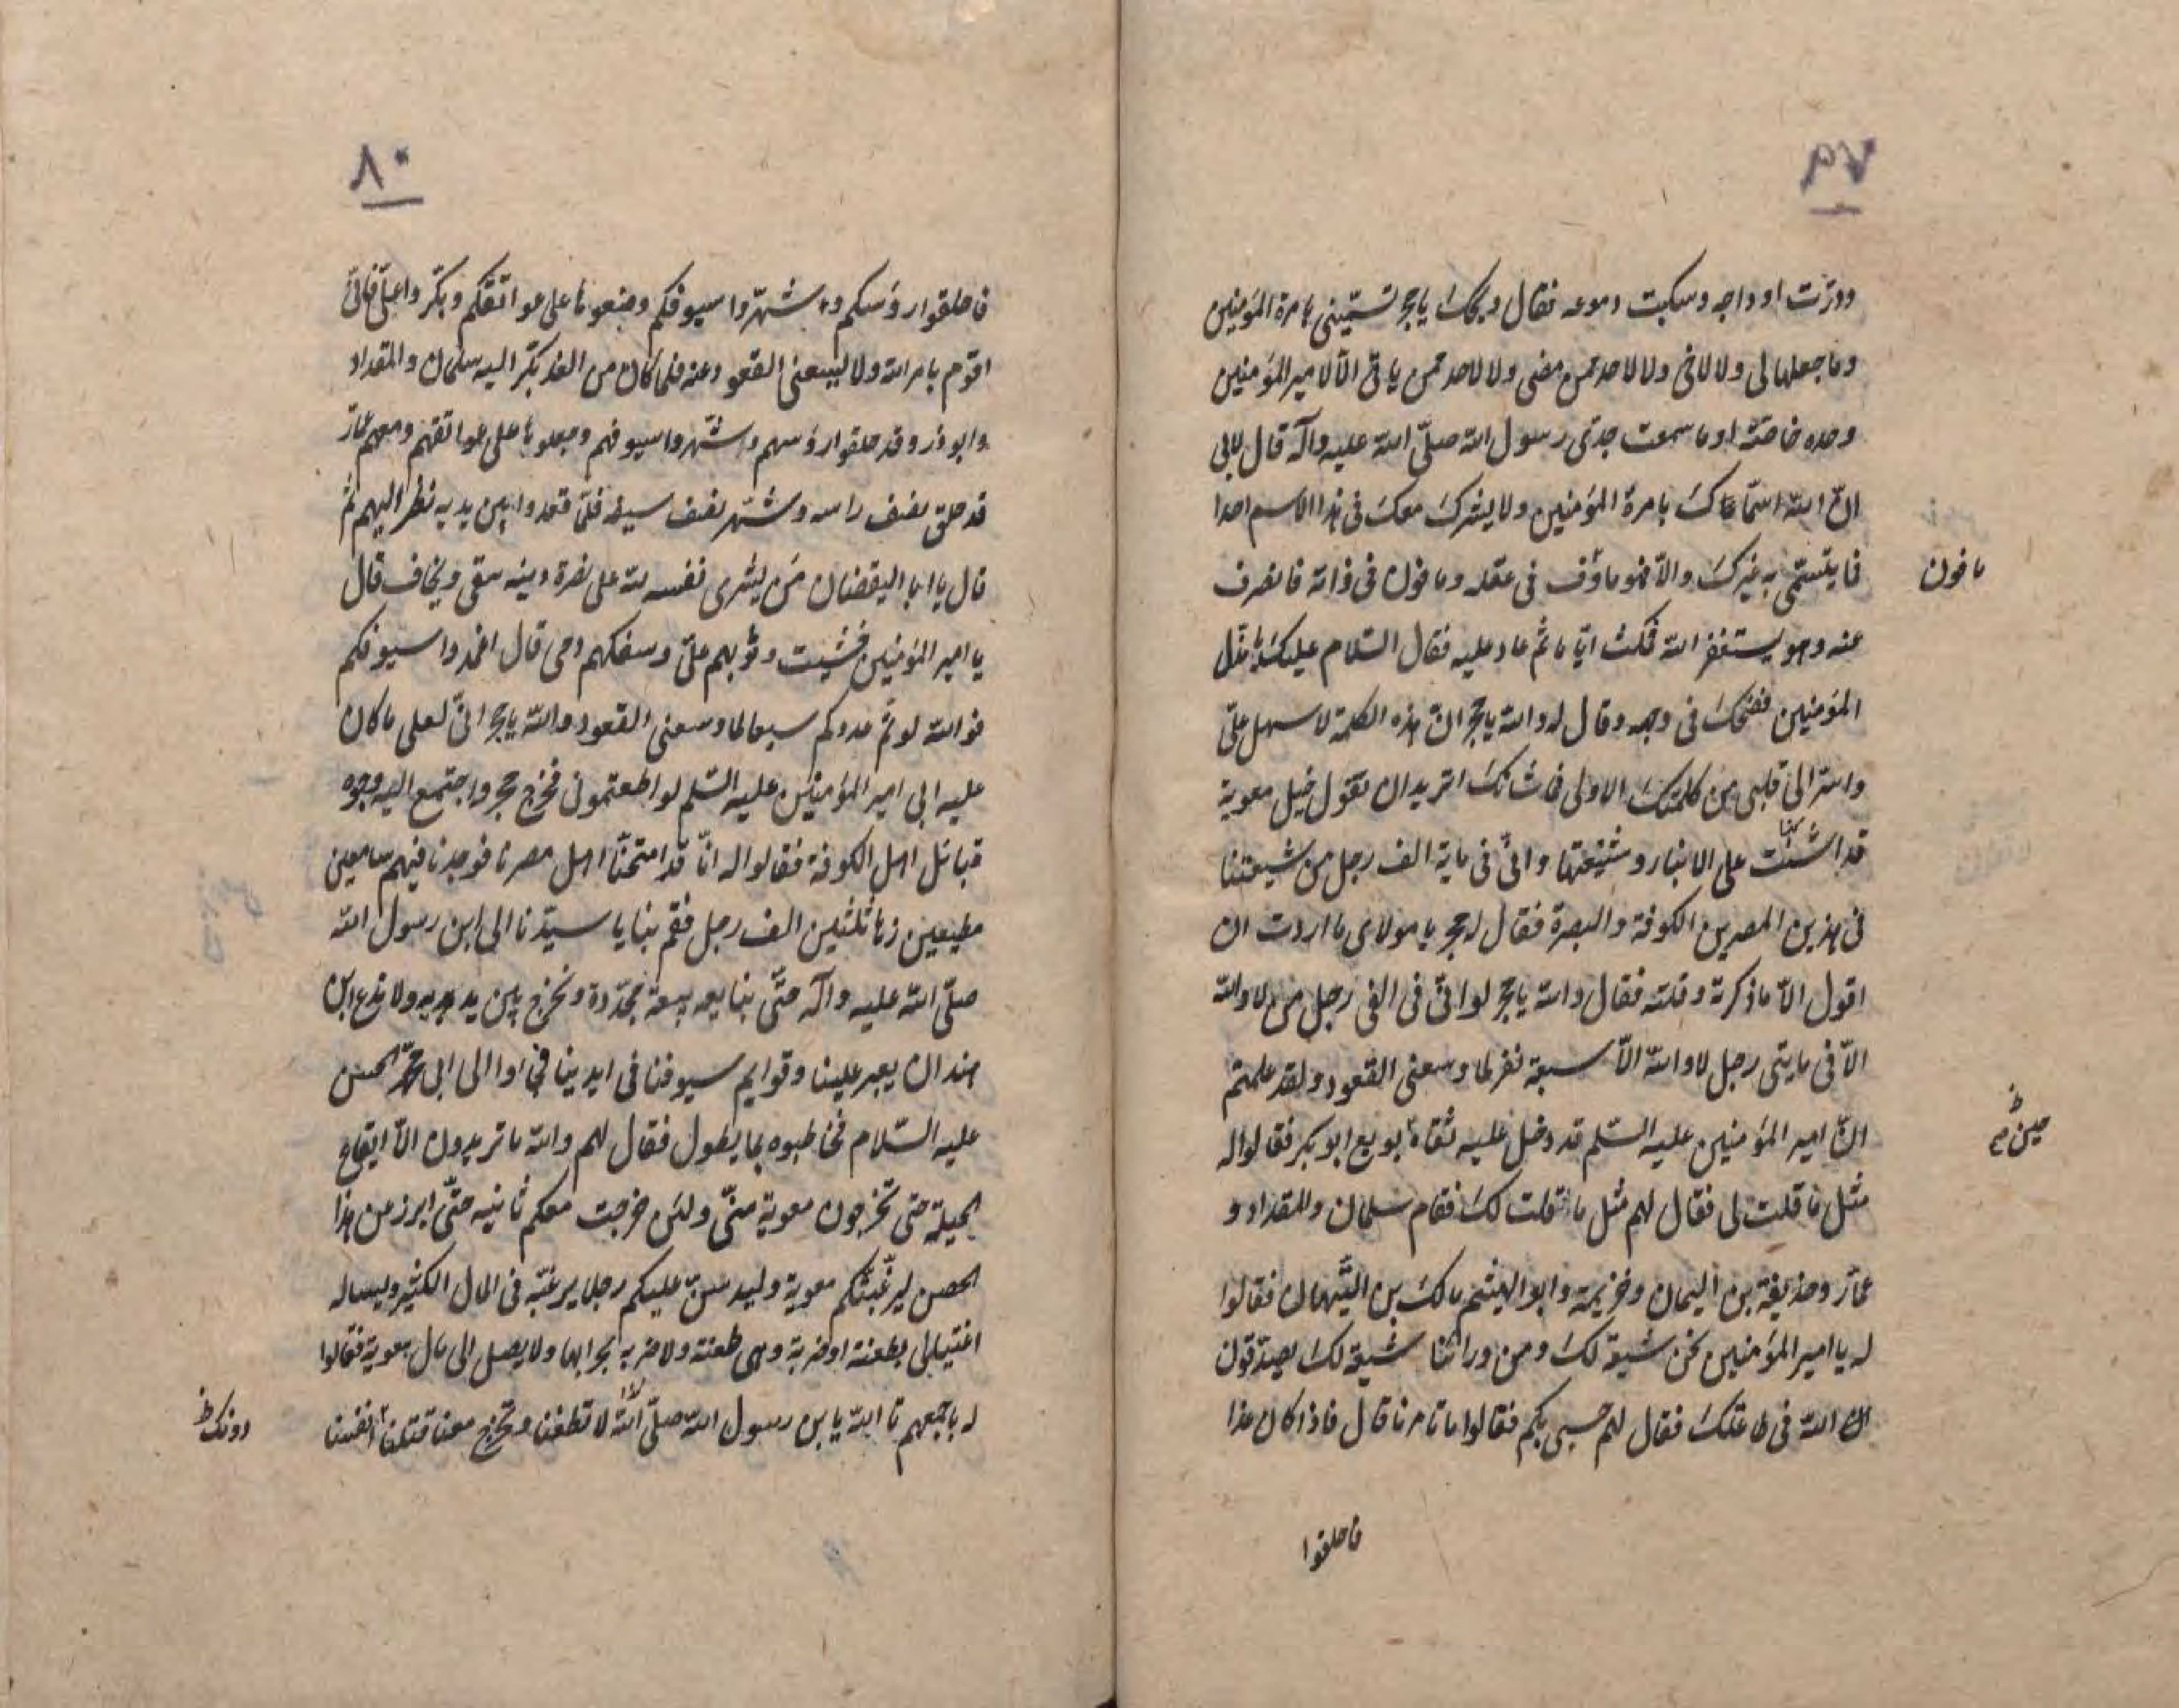 ٧٩
ودرّت اوداجه وسكبت دموعه فقال ويحك يا حجر تسمّينى بامرة المؤمنين
وما جعلها لى ولا لاخى ولا لاحد ممن مضى ولا لاحد ممن ياتى الّا لامير المؤمنين
وحده خاصّة اوما سمعت جدّى رسول الله صلّى الله عليه وآله قال لابى
انّ الله سمّاك بامرة المؤمنين ولا يشرك معك فى هذا الاسم احدا
فما يتسمّى به غيرك والّا فهو ماوف فى عقله ومافون فى ذاته فانصرف
مافون
عنه وهو يستغفر الله فمكث ايّاما ثمّ عاد عليه فقال السّلام عليك يا مذلّ
المؤمنين فضحك فى وجهه وقال له والله يا حجر انّ هذه الكلمة لاسهل علىّ
واسرّ الى قلبى من كلمتك الاولى فما شانك اتريد ان تقول خيل معوية
قد اشنت على الانبار و وانّى فى ماية الف رجل من شيعتنا
فى هذين المصرين الكوفة والبصرة فقال له حجر يا مولاى ما اردت ان
اقول الّا ما ذكرته وقلته فقال والله يا حجر لو انّى فى الف رجل من لا والله
الّا فى مايتى رجل لا والله الّا سبعة نفر لما وسعنى القعود ولقد علمتم
انّ امير المؤمنين عليه السّلم قد دخل عليه ثقاته بويع ابو بكر فقالوا له
حين
مثل ما قلت لى فقال لهم مثل ما قلت لك فقام سلمان والمقداد و
عمّار وحذيفة بن اليمان وخزيمة وابو الهيثم مالك بن التّيّهان فقالوا
له يا امير المؤمنين نحن شيعة لك ومن ورائنا شيعة لك يصدقون
الله الله فى طاعتك فقال لهم حسبى بكم فقالوا ما تامرنا قال فاذا كان غدا
فاحلقوا
٨٠
فاحلقوا رؤسكم واشهروا سيوفكم وضعوها على عواتقكم وبكّروا علىّ فانّى
اقوم بامر الله ولا يسعنى القعود عنه فلما كان من الغد بكّر اليه سلمان والمقداد
وابوذر وقد حلقوا رؤسهم واشهروا سيوفهم وجعلوها على عواتقهم ومعهم عمّار
قد حلق نصف راسه وشهر نصف سيفه فلمّا قعدوا بين يديه نظر اليهم ثم
قال يا ابا اليقضان من يشرى نفسه لله على نصرة دينه يتقى ويخاف قال
يا امير المؤمنين خشيت وثوبهم علىّ وسفكهم دمى قال اغمدوا سيوفكم
فوالله لو تمّ عددكم سبعا لما وسعنى القعود والله يا حجر انّى لعلى ما كان
عليه ابى امير المؤمنين عليه السّلم لو اطعتمونى فخرج حجر واجتمع اليه وجوه
قبائل اهل الكوفة فقالوا له انّا قد امتحنّا اهل مصرنا فوجدنا فيهم سامعين
مطيعين زهاء ثلثين الف رجل فقم بنا يا سيّدنا الى ابن رسول الله
صلّى الله عليه وآله حتّى نبايعه بيعة مجدّدة ونخرج بين يديه ولا ندع ابن
هند ان يعبر علينا وقوايم سيوفنا فى ايدينا فجاؤا الى ابى محمّد الحسن
عليه السّلام فخاطبوه بما يطول فقال لهم والله ما تريدون الّا ايقاع
الحيلة حتى تخرجون معوية منّى ولئن خرجت معكم ثانيه حتّى ابرز من هذا
الحصن ليرغّبنّكم معوية وليدسّنّ عليكم رجلا يرغّبه فى المال الكثير ويساله
اغتيالى بطعنة او ضربة ولا يصل الى مال معوية فقالوا
له باجمعهم تا الله يا بن رسول الله صلّى الله لا تطعنا وتخرج معنا قتلنا انفسنا
دونك ظ